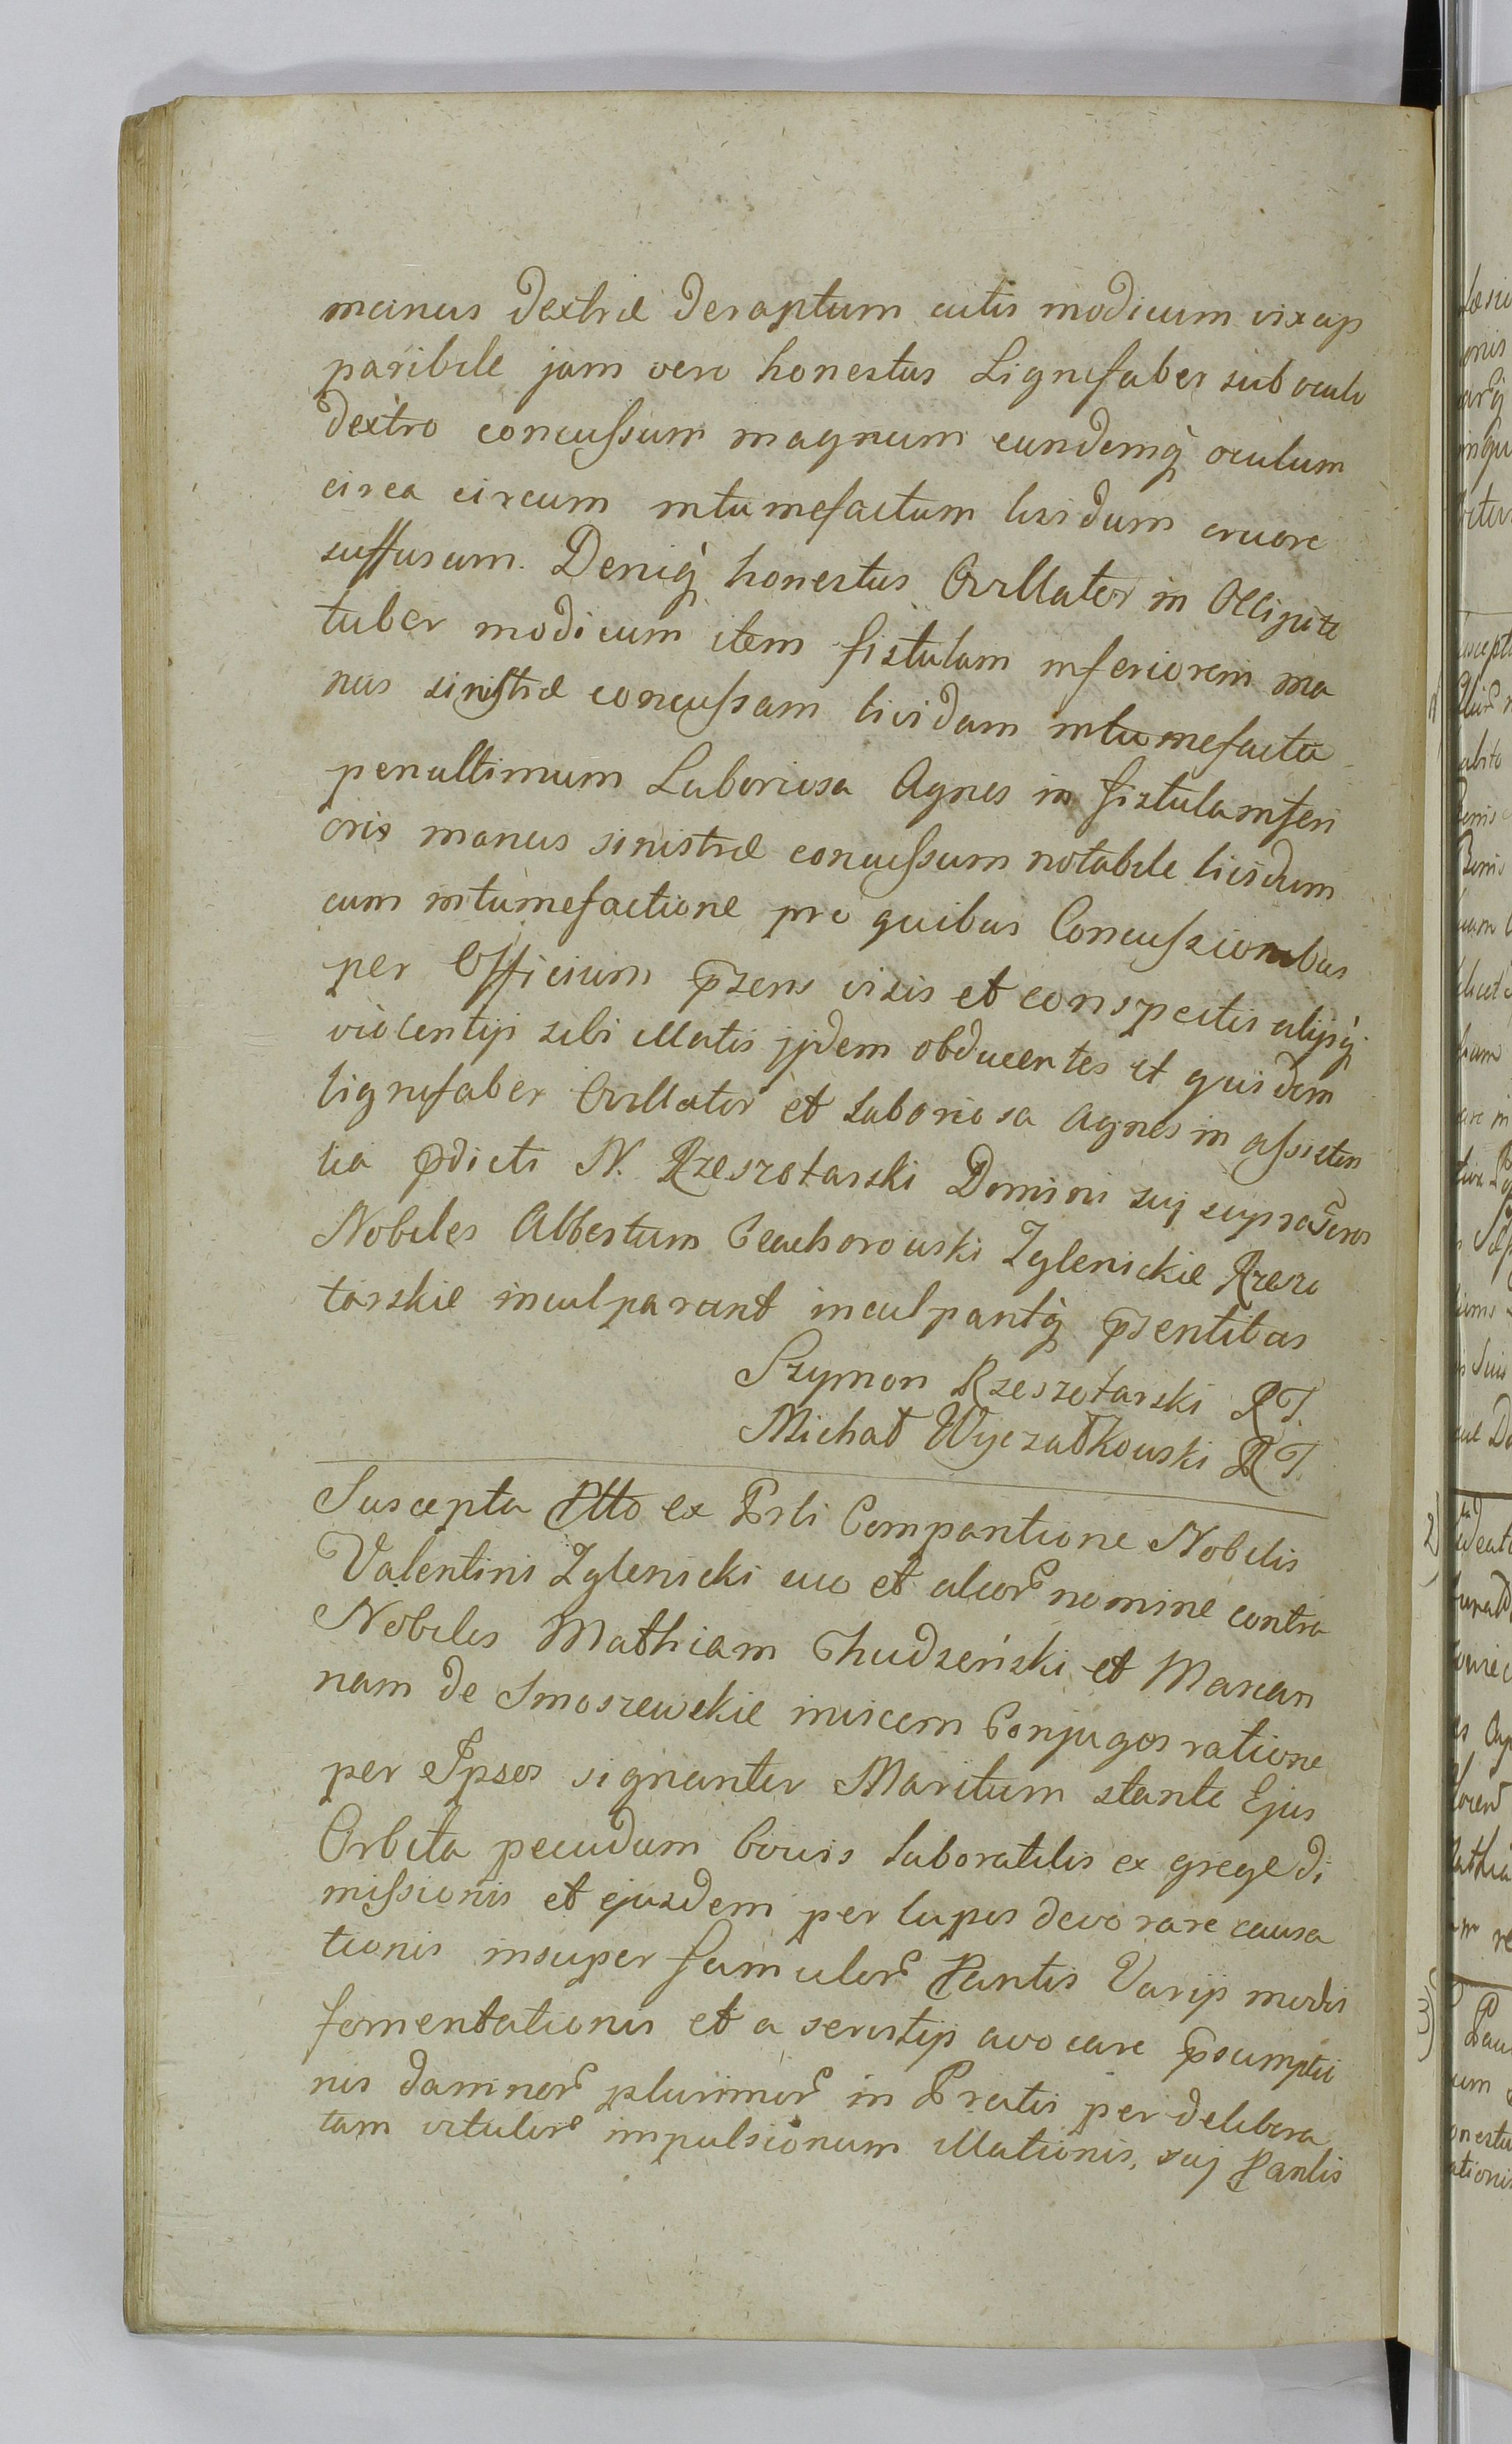 manus dextræ deraptum cutis modicum vix ap
paribile jam vero honestus Lignifaber sub oculo
dextro concussum magnum eundemq̀ oculum
circa circum intumefactum lividum cruore
suffusum. Deniq̀ honestus Ovillator in Occipite
tuber modicum item fistulam inferiorem ma
nus sinistræ concussam lividam intumefactā
penultimum Laboriosa Agnes in fistula inferi
oris manus sinistræ concussum notabile lividum
cum intumefactione pro quibus Concussionibus
per Officium pñzens visis et conspectis alijsq̀
violentijs sibi illatis ijdem obducentes et quidem
lignifaber Ovillator et Laboriosa Agnes in assisten
tia pdicti N. Rzeszotarski Domini sui supra
Nobiles Albertum Ciachorowski Zglenickie Rzeszo
tarskie inculparunt inculpantq̀ pñsentibus
Szymon Rzeszotarski RT.
Michał Wyczałkowski RT.
Suscepta Ptto ex Prli Compantione Nobilis
Valentini Zglenicki suo et alior nomine contra
Nobiles Mathiam Chudzeński et Marian
nam de Smoszewskie invicem Conjuges ratione
per Ipsos signanter Maritum stante Ejus
Orbita pecudum bovis laboratilis ex grege di
missionis et ejusdem per lupos devorare causa
tionis insuper famulor Pantis Varijs modis
fomentationis et a servitijs avocare psumptio
nis damnor plurimor in Pratis per delibera
tam vitulor impulsionum illationis, suj Pantis